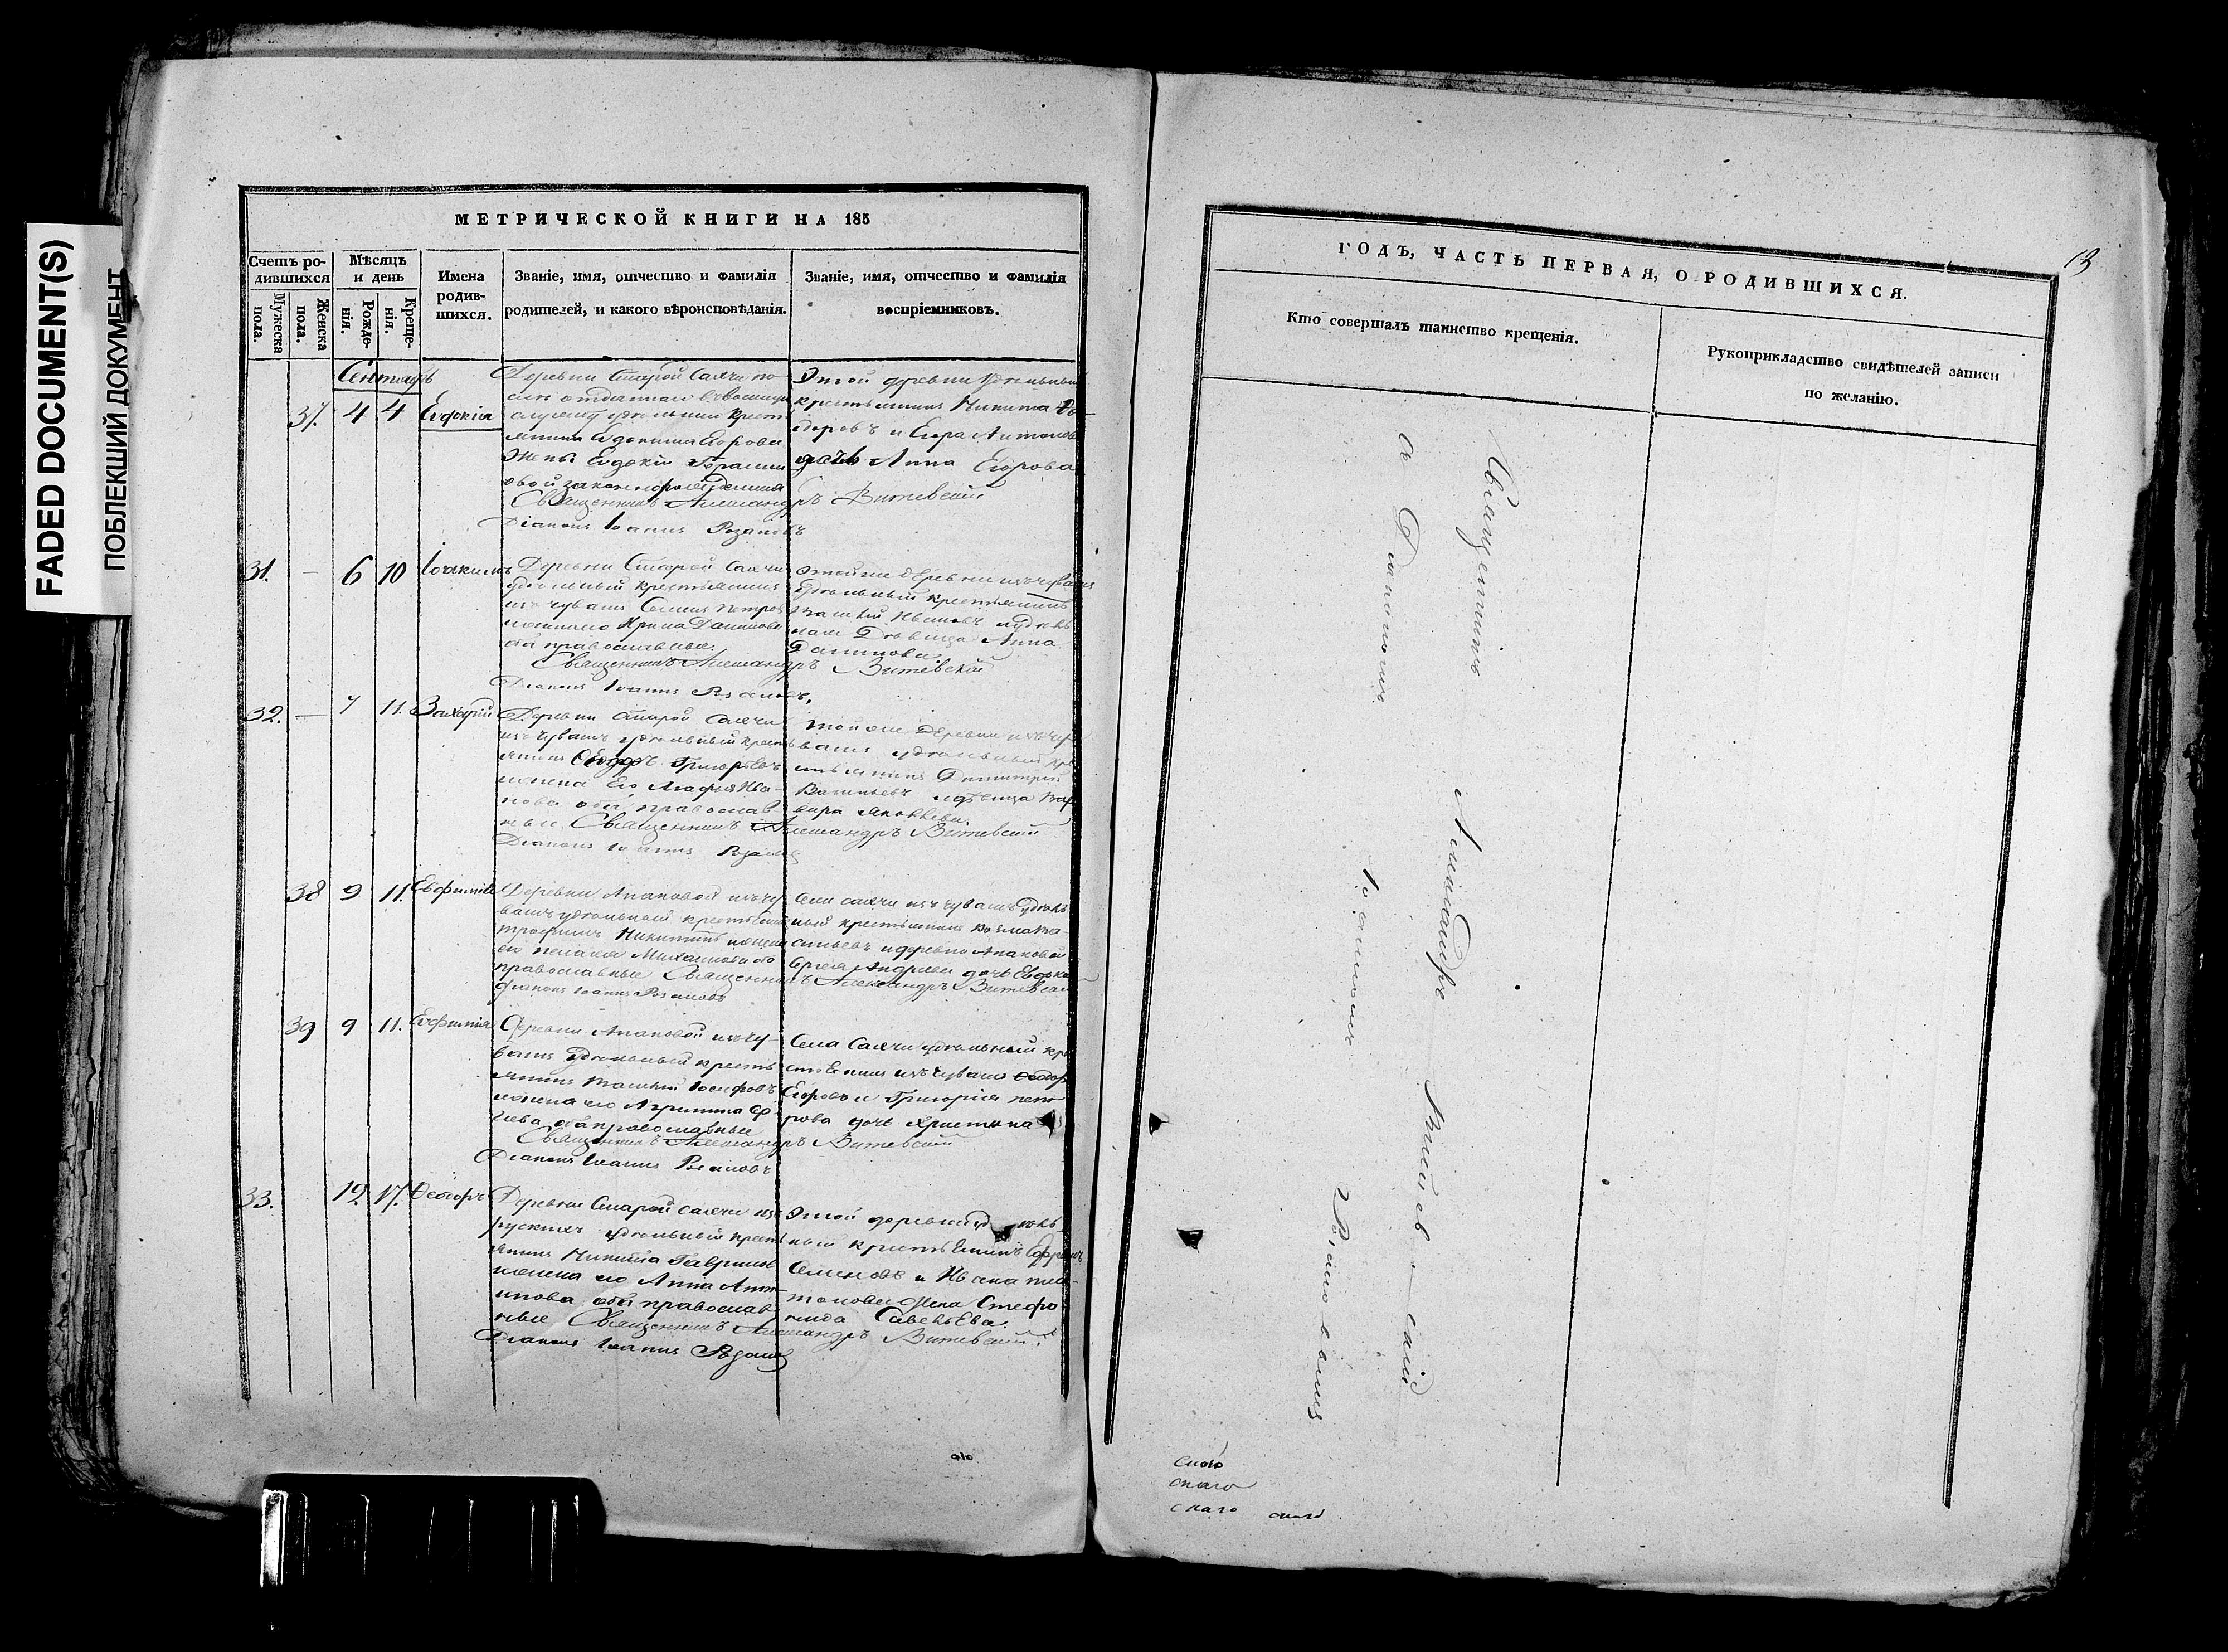 FADED DOCUMENT(S)
ПОБЛЕКШИЙ ДОКУМЕНТ
МЕТРИЧЕСКОЙ КНИГИ НА 185
Счетъ ро-
дившихся
Мужеска
пола.
Женска
пола.
Мѣсяцъ
и день
Рожде-
нія.
Креще-
нія.
Имена
родив-
шихся.
Званіе, имя, отчество и фамилія
родителей, и какого вѣроисповѣданія.
Званіе, имя, отчество и фамилія
воспріемниковъ.
Сентябрь
37. 4 4 Евдокія
Деревни Старой Саячи
удѣльный крест
янина Егорова
жены Евдокіи
Священникъ Александръ Витевскій
Діаконъ Іоаннъ Розановъ
Этой деревни удѣльный
крестьянинъ Никита Ѳе-
доровъ и Егора Антонова
дочь Анна Егорова
31. — 6 10 Іоакимъ
Деревни Старой Саячи
удѣльный крестьянинъ
изъ чувашъ Семенъ Петровъ
и жена его Ирина Данилова
оба православные.
Священникъ Александръ Витевскій
Діаконъ Іоаннъ Розановъ.
этой же деревни изъ чувашъ
удѣльный крестьянинъ
Ивановъ и удѣль
ная Дѣвица Анна
Данилова.
32. — 7 11. Захарій
Деревни Старой Саячи
изъ чувашъ удѣльный кресть
янинъ Ѳедоръ Григорьевъ
и жена Его Агафья Ива-
нова оба православ
ные, Священникъ Александръ Витевскій
Діаконъ Іоаннъ Розановъ
той же деревни изъ чу
вашъ удѣльный кре
стьянинъ Димитрій
Васильевъ и дѣвица Вар
вара Яковлева.
38 9 11. Евфимія
Деревни Апаковой изъ чу
вашъ удѣльный крестьянинъ
Трофимъ Никитинъ и жена
его Пелагія Михаилова оба
православные Священникъ Александръ Витевскій
Діаконъ Іоаннъ Розановъ
Села Саячи изъ чувашъ удѣль
ный крестьянинъ Козма Ва-
сильевъ и деревни Апаковой
Сергѣя Андреева дочь Евдокія
39 9 11. Евфимія
Деревни Апаковой изъ чу-
вашъ удѣльный кресть
янинъ Іосифовъ
и жена его Агрипина
оба православные
Священникъ Александръ Витевскій
Діаконъ Іоаннъ Розановъ
Села Саячи удѣльный кре
стьянинъ изъ чувашъ Ѳедоръ
Егоровъ и Григорія Пет
рова дочь Христина
33. 12. 17. Ѳеодоръ
Деревни Старой Саячи изъ
рускихъ удѣльный кресть
янинъ Никита Гавриловъ
и жена его Анна Анти
пова оба православ
ные Священникъ Александръ Витевскій.
Діаконъ Іоаннъ Розановъ
Этой деревни удѣль
ный крестьянинъ Ефремъ
Семеновъ и Ивана Пла
тонова жена Стефа
нида Савельева.
13
ГОДЪ, ЧАСТЬ ПЕРВАЯ, О РОДИВШИХСЯ.
Кто совершалъ таинство крещенія.
Рукоприкладство свидѣтелей записи
по желанію.
Священникъ Александръ Витевскій
съ Діакономъ Іоанномъ Розановымъ
скаго
скаго
скаго скаго